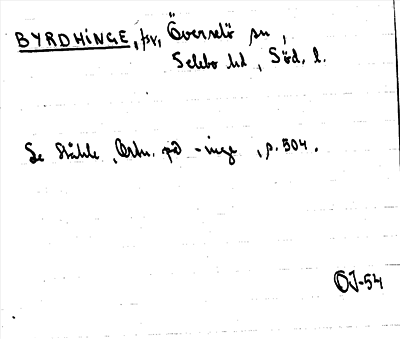 BYRDHINGE, fsv, Överselö sn,
Selebo hd, Söd. l.
Se Ståhle, Ortn. på -inge, p. 504.
OJ-54